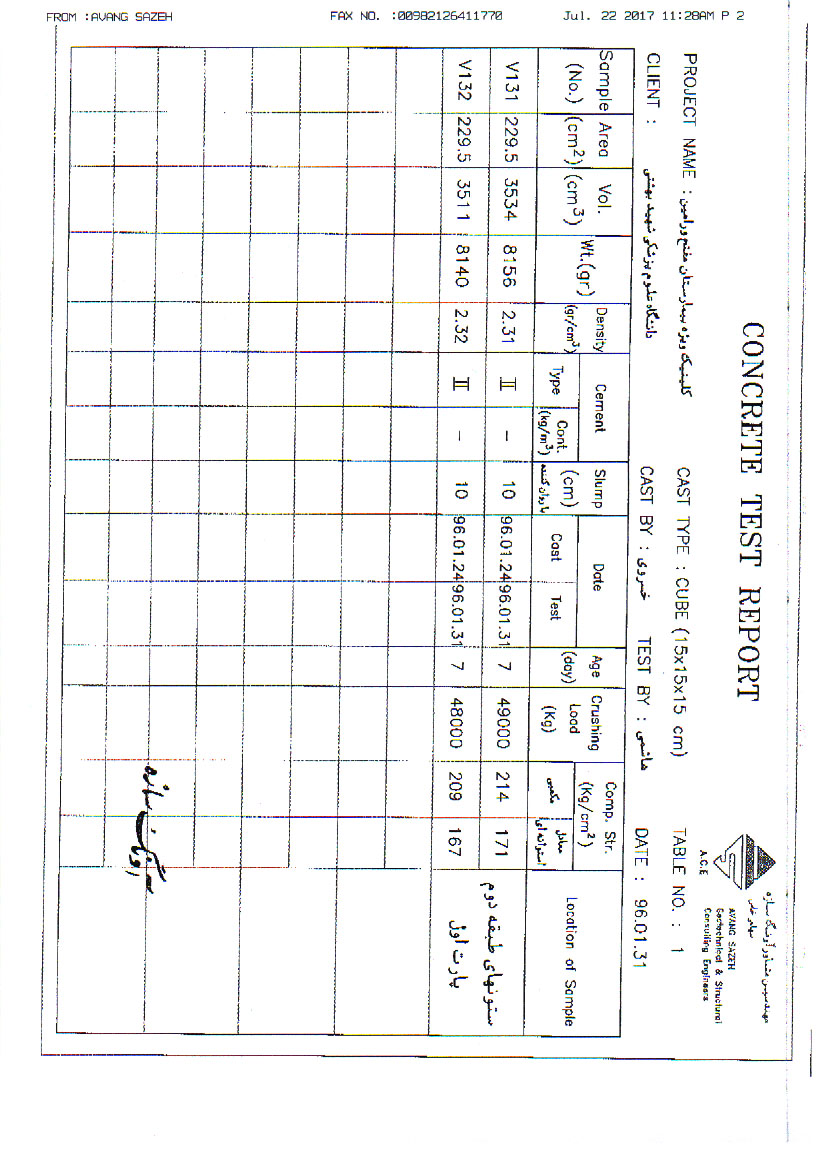 FROM :AVANG SAZEH FAX NO. :00982126411770 Jul. 22 2017 11:28AM P 2
CONCRETE TEST REPORT
مهندسین مشاور آونگ سازه
AVANG SAZEH
Geotechnical & Structural
Consulting Engineers
A.C.E
PROJECT NAME : کلینیک ویژه بیمارستان مفتح ورامین CAST TYPE : CUBE (15x15x15 cm) TABLE NO. : 1
CLIENT : دانشگاه علوم پزشکی شهید بهشتی CAST BY : خسروی TEST BY : هاشمی DATE : 96.01.31
Sample (No.) Area (cm2) Vol. (cm3) Wt.(gr) Density (gr/cm3) Cement Type Cont. (kg/m3) Slump (cm) با روان کننده Date Cast Test Age (day) Crushing Load (Kg) Comp. Str. (Kg/cm2) مکعبی معادل استوانه ای Location of Sample
V131 229.5 3534 8156 2.31 II – 10 96.01.24 96.01.31 7 49000 214 171 ستونهای طبقه دوم
V132 229.5 3511 8140 2.32 II – 10 96.01.24 96.01.31 7 48000 209 167 پارت اول
آونگ سازه